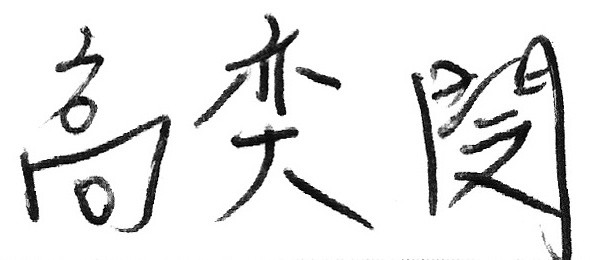 高奕閔